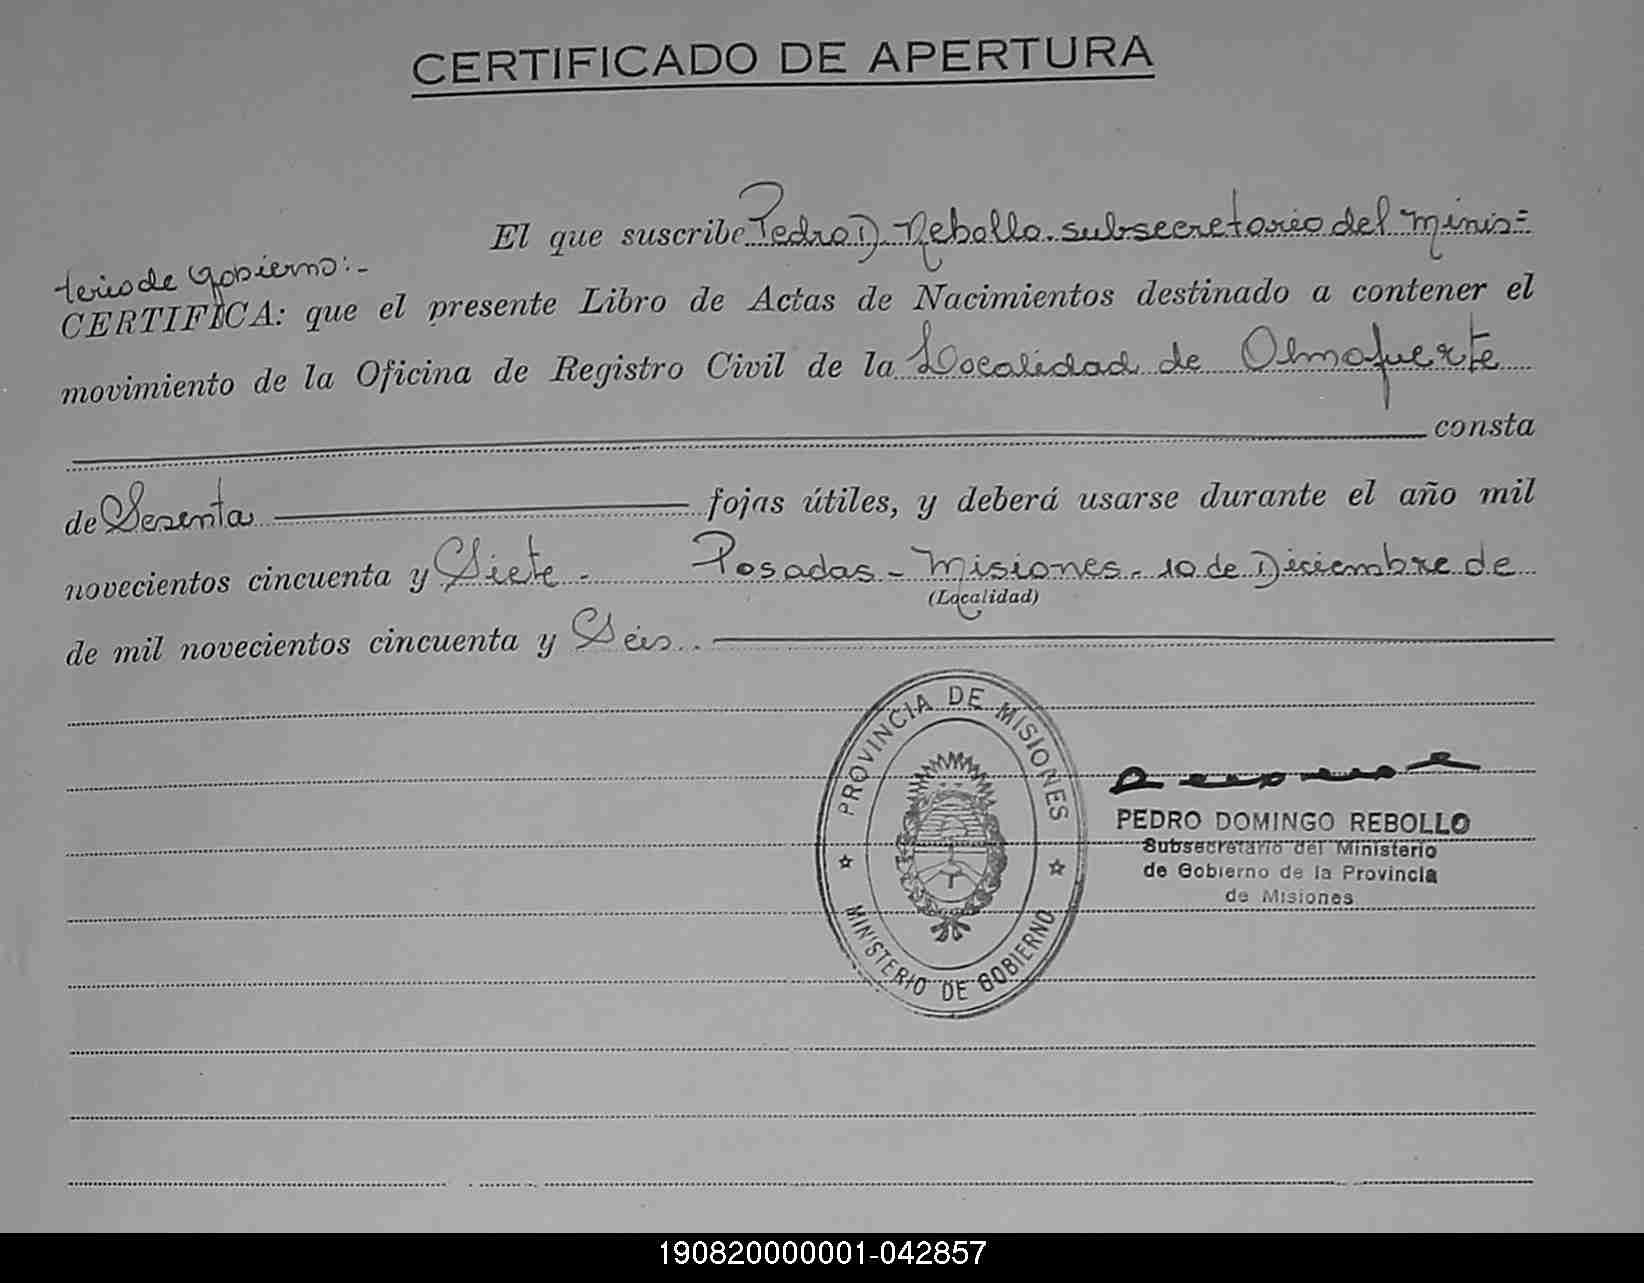 CERTIFICADO DE APERTURA
El que suscribe Pedro D. Rebollo. subsecretario del Minis=
terio de Gobierno:-
CERTIFICA: que el presente Libro de Actas de Nacimientos destinado a contener el
movimiento de la Oficina de Registro Civil de la Localidad de Olmafuerte
consta
de Sesenta fojas útiles, y deberá usarse durante el año mil
novecientos cincuenta y Siete - Posadas - Misiones - 10 de Diciembre de
(Localidad)
de mil novecientos cincuenta y Séis..
PROVINCIA DE MISIONES
MINISTERIO DE GOBIERNO
PEDRO DOMINGO REBOLLO
Subsecretario del Ministerio
de Gobierno de la Provincia
de Misiones
190820000001-042857